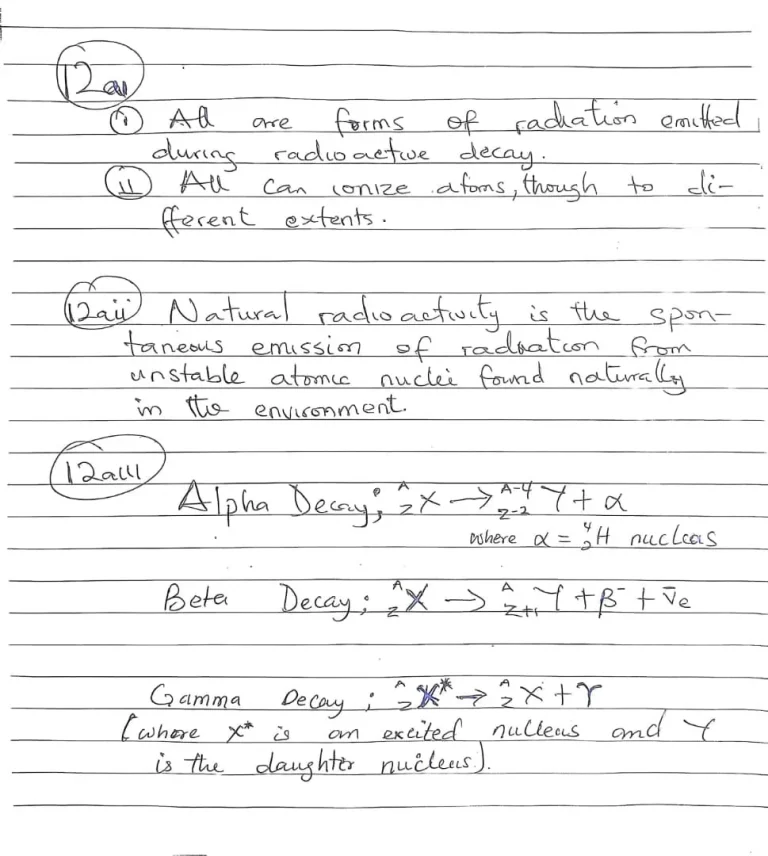 12ai
(i) All are forms of radiation emitted
during radioactive decay.
(ii) All can ionize atoms, though to di-
fferent extents.
12aii Natural radioactivity is the spon-
taneous emission of radiation from
unstable atomic nuclei found naturally
in the environment.
12aiii
Alpha Decay; ᴬ_Z X → ᴬ⁻⁴_Z-2 Y + α
where α = ⁴₂H nucleus
Beta Decay; ᴬ_Z X → ᴬ_Z+1 Y + β⁻ + ν̄e
Gamma Decay; ᴬ_Z X* → ᴬ_Z X + γ
(where X* is an excited nulleus and Y
is the daughter nucleus).